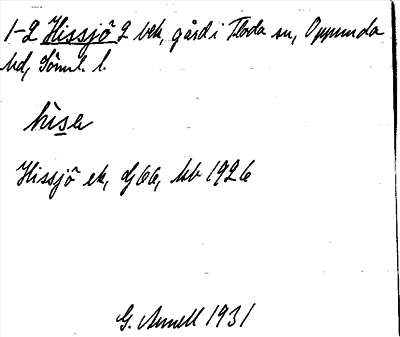 1-2 Hissjö 2 bek, gård i Floda sn, Oppunda
hd, Söml. l.
hise
Hissjö ek, dj 66, kb 1926
G. Annell 1931